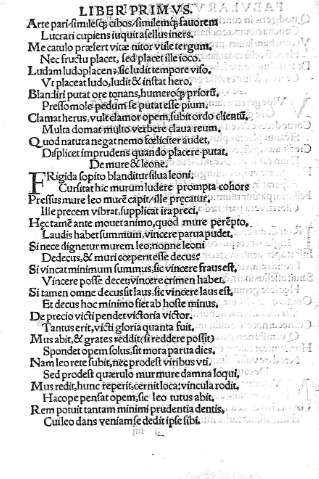 LIBER PRIMVS.
Arte pari similesq; cibos, similemq; fauorem
Lucrari cupiens iuquit asellus iners.
Me catulo præfert vitæ nitor vtile tergum,
Nec fructu placet, sed placet ille ioco.
Ludam ludo placens, sic ludit tempore viso,
Vt placeat ludo, ludit & instat hero.
Blandiri putat ore tonans, humerosq; priorū
Presso mole pedum se putat esse pium.
Clamat herus, vult clamor opem, subit ordo clientū,
Multa domat multo verbere claua reum.
Quod natura negat nemo fœliciter audet,
Displicet imprudens quando placere putat.
De mure & leone.
FRigida sopito blanditur silua leoni.
Cursitat hic murum ludere prompta cohors
Pressus mure leo murē capit, ille precatur,
Ille precem vibrat, supplicat ira preci.
Hęc tamē ante mouet animo, quod mure perēpto,
Laudis habet summum, vincere parua pudet.
Si nece dignetur murem leo: nonne leoni
Dedecus, & muri cœperit esse decus?
Si vincat minimum summus, sic vincere fraus est,
Vincere posse decet, vincere crimen habet.
Si tamen omne decus sit laus, sic vincere laus est,
Et decus hoc minimo fiet ab hoste minus,
De precio victi pendet victoria victor.
Tantus erit, victi gloria quanta fuit,
Mus abit, & grates reddit (si reddere possit)
Spondet opem solus, sit mora parua dies.
Nam leo rete subit, nec prodest viribus vti.
Sed prodest querulo murmure damna loqui,
Mus redit, hunc reperit: cernit loca: vincula rodit.
Hac ope pensat opem, sic leo tutus abit.
Rem potuit tantam minimi prudentia dentis,
Cui leo dans veniam se dedit ipse sibi.